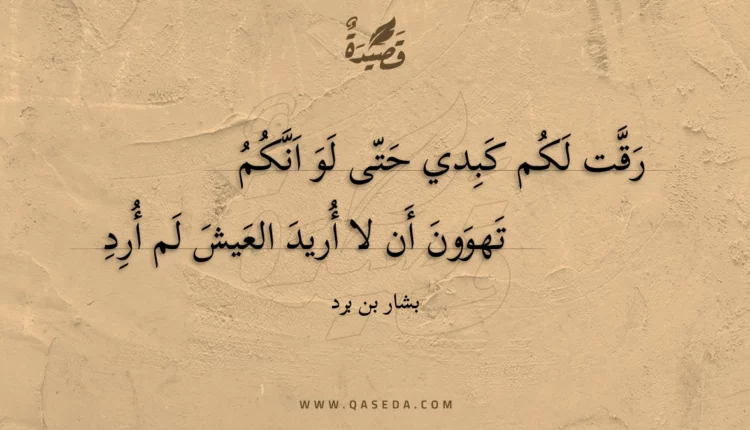 قَصِيدَةٌ
رَقَّت لَكُم كَبِدي حَتّى لَوَ اَنَّكُمُ
تَهوَونَ أَن لا أُريدَ العَيشَ لَم أُرِدِ
بشار بن برد
WWW.QASEDA.COM